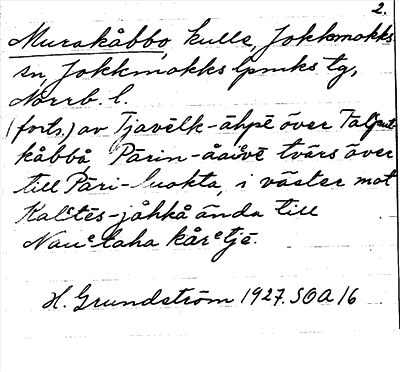 2.
Murakåbbo, kulle, Jokkmokks
sn, Jokkmokks lpmks tg,
Norrb. l.
(forts.) av Tjavelk-åhpē över
kåbbå, Pärin-åaivē tvärs över
till Päri-luokta, i väster mot
Kalᵉtēs-jåhkå ända till
Nauᵉlaha kårᵉtjē.
H. Grundström 1927. SOA 16